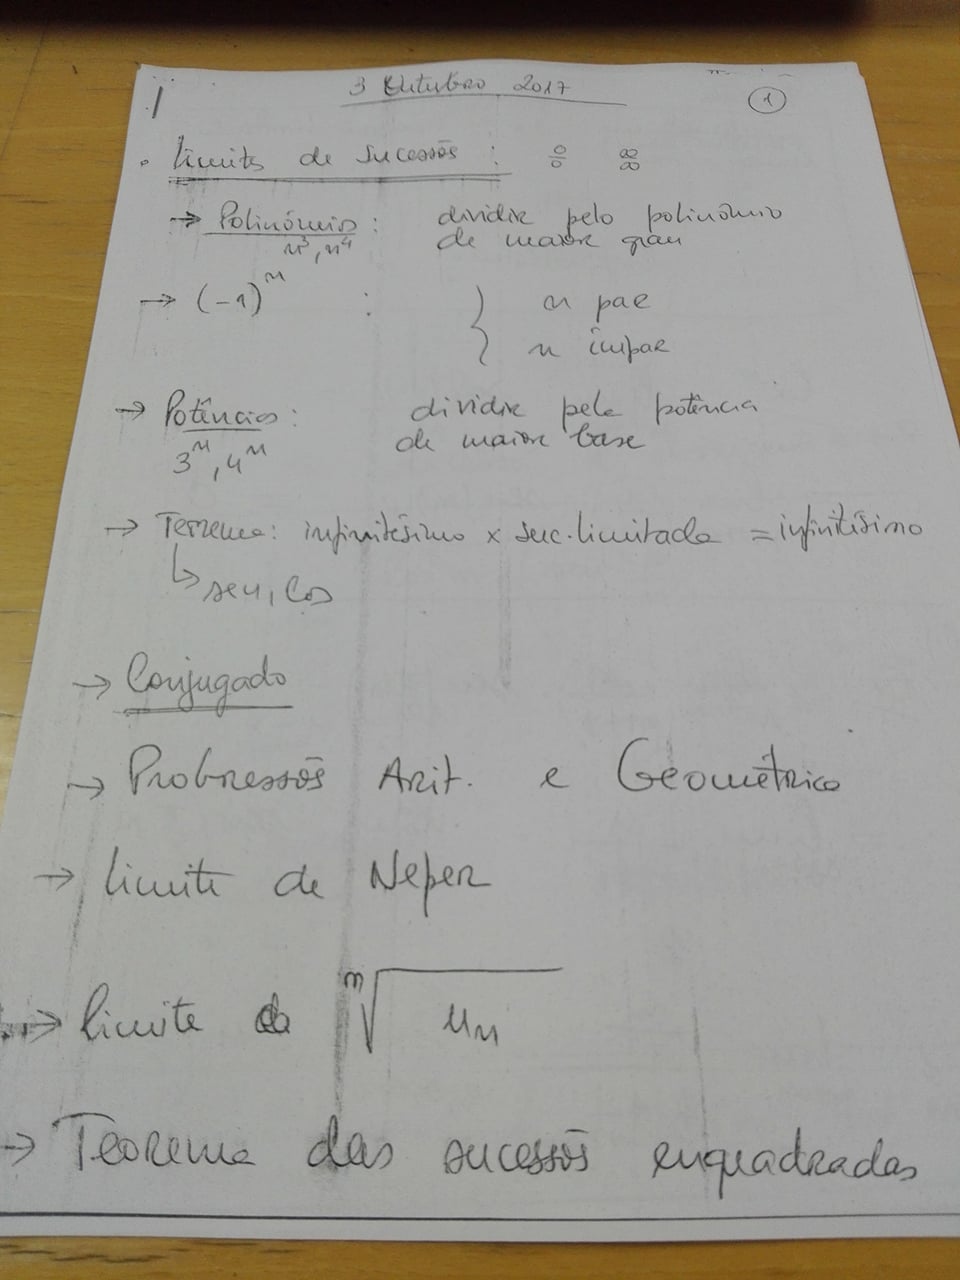 3 Outubro 2017
1
• Limite de Sucessões : 0/0 ∞/∞
→ Polinómios : dividir pelo polinómio
n³, n⁴ de maior grau
→ (-1)ⁿ : } n par
n ímpar
→ Potências : dividir pela potência
3ⁿ, 4ⁿ de maior base
→ Teorema: infinitésimo x suc. limitada = infinitésimo
↳ sen, cos
→ Conjugado
→ Progressões Arit. e Geométrica
→ Limite de Neper
→ Limite da ⁿ√uₙ
→ Teorema das sucessões enquadradas